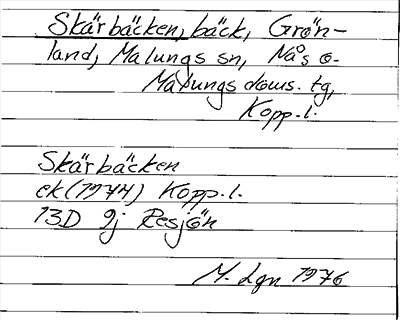 Skärbäcken, bäck, Grön-
land, Malungs sn, Nås o.
Malungs doms. tg,
Kopp.l.
Skärbäcken
ek (1974) Kopp.l.
13D 9j Resjön
M. Lgn 1976